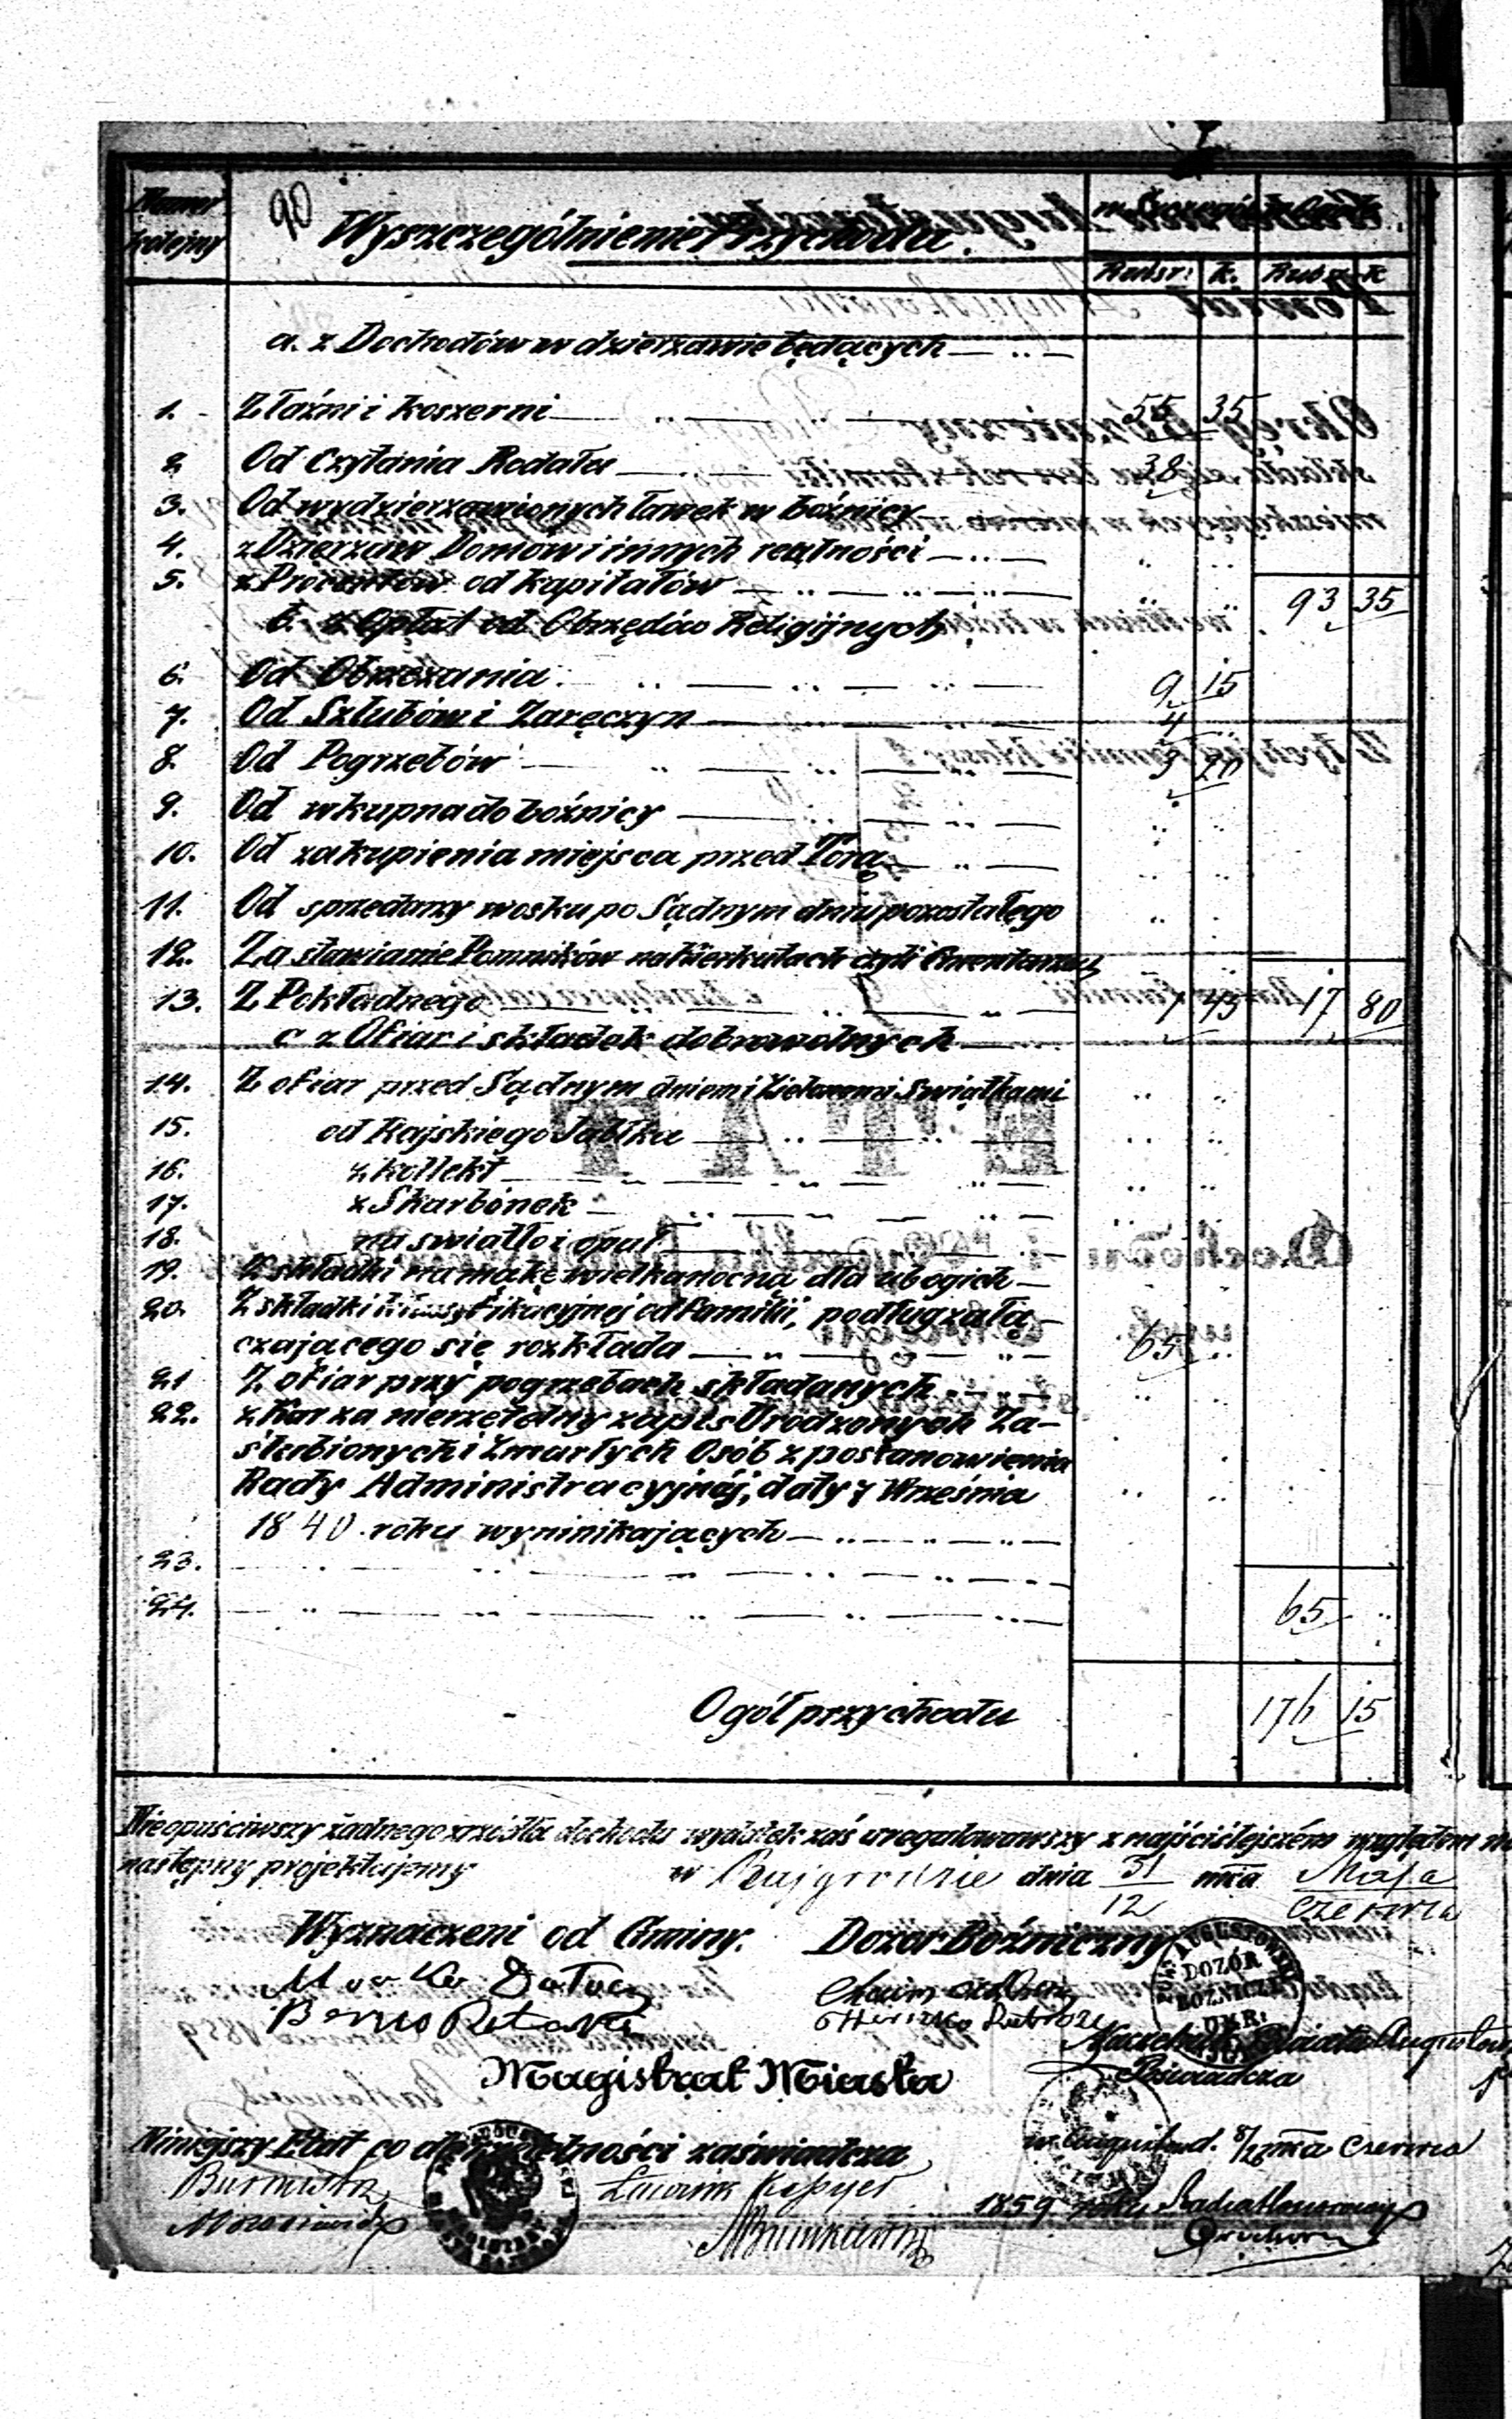 Numer kolejny
90
Wyszczególnienie Przychodu.
Rubsr: k. Rubsr k
a. z Dochodów w dzierzawie będących
1. Z łaźni i koszerni 55 35
2. Od Czytania Rodału 38
3. Od wydzierzawionych ławek w bóżnicy
4. z Dzierzaw Domów i innych realności
5. z Procentów od kapitałów 93 35
b. z Opłat od Obrzędów Religijnych
6. Od Obrzezania 9 15
7. Od Szlubów i Zaręczyn 4
8. Od Pogrzebów 3 20
9. Od wkupna do bóźnicy
10. Od zakupienia miejsca przed Torą
11. Od sprzedarzy wosku po Sądnym dniu pozostałego
12. Za stawianie Pomników na Kierkutach czyli Cmentarzu
13. Z Pokładnego 1 45 17 80
c z Ofiar i składek dobrowolnych
14. Z ofiar przed Sądnym dniem i Zielonemi Swiątkami
15. od Rajskiego Jabłka
16. z kollekt
17. z Skarbonek
18. na swiatło i opał
19. Z składki na mąkę wielkanocną dla ubogich
20. Z składki klassyfikacyjnej od familii, podług załą-
czającego się rozkłada 65
21 Z ofiar przy pogrzebach składanych
22. z Kar za nierzetelny zapis Urodzonych Za-
ślubionych i Zmarłych Osób z postanowienia
Rady Administracyjnéj, daty 7 Września
1840. roku wyninikających
23.
24. 65
Ogół przychodu 176 15
Nieopuściwszy żadnego źrzódła dochodu wydatek zaś uregulowawszy z najściślejszém względem
następny projektujemy w Rajgrodzie dnia 31/12 mca Maja/Czerwca
Wyznaczeni od Gminy. Dozór Bóżniczny
DOZÓR
OKR:
Magistrat Miasta
Poświadcza
Niniejszy Etat co do rzetelności zaświadcza
w August d. 8/20 mca Czerwca
Burmistrz
1859 roku